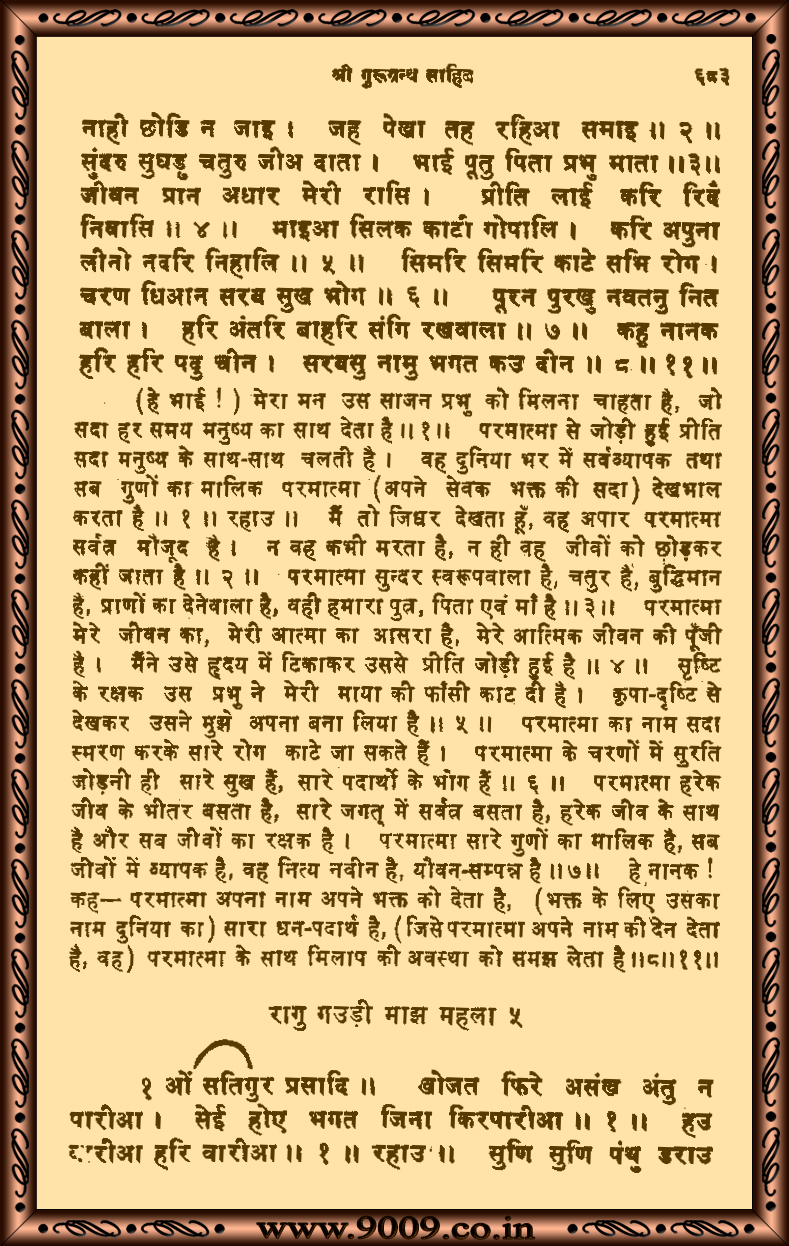 श्री गुरूग्रन्थ साहिब ६८३
नाही छोडि न जाइ । जह पेखा तह रहिआ समाइ ॥ २ ॥
सुंदरु सुघड़ु चतुरु जीअ दाता । भाई पूतु पिता प्रभु माता ॥३॥
जीवन प्रान अधार मेरी रासि । प्रीति लाई करि रिदै
निवासि ॥ ४ ॥ माइआ सिलक काटी गोपालि । करि अपुना
लीनो नदरि निहालि ॥ ५ ॥ सिमरि सिमरि काटे सभि रोग ।
चरण धिआन सरब सुख भोग ॥ ६ ॥ पूरन पुरखु नवतनु नित
बाला । हरि अंतरि बाहरि संगि रखवाला ॥ ७ ॥ कहु नानक
हरि हरि पदु चीन । सरबसु नामु भगत कउ दीन ॥ ८ ॥ ११॥
(हे भाई ! ) मेरा मन उस साजन प्रभु को मिलना चाहता है, जो
सदा हर समय मनुष्य का साथ देता है ॥ १॥ परमात्मा से जोड़ी हुई प्रीति
सदा मनुष्य के साथ-साथ चलती है । वह दुनिया भर में सर्वव्यापक तथा
सब गुणों का मालिक परमात्मा (अपने सेवक भक्त की सदा) देखभाल
करता है ॥ १ ॥ रहाउ ॥ मैं तो जिधर देखता हूँ, वह अपार परमात्मा
सर्वत्र मौजूद है । न वह कभी मरता है, न ही वह जीवों को छोड़कर
कहीं जाता है ॥ २ ॥ परमात्मा सुन्दर स्वरूपवाला है, चतुर है, बुद्धिमान
है, प्राणों का देनेवाला है, वही हमारा पुत्र, पिता एवं माँ है ॥३॥ परमात्मा
मेरे जीवन का, मेरी आत्मा का आसरा है, मेरे आत्मिक जीवन की पूँजी
है । मैंने उसे हृदय में टिकाकर उससे प्रीति जोड़ी हुई है ॥ ४ ॥ सृष्टि
के रक्षक उस प्रभु ने मेरी माया की फाँसी काट दी है । कृपा-दृष्टि से
देखकर उसने मुझे अपना बना लिया है ॥ ५ ॥ परमात्मा का नाम सदा
स्मरण करके सारे रोग काटे जा सकते हैं । परमात्मा के चरणों में सुरति
जोड़नी ही सारे सुख हैं, सारे पदार्थों के भोग हैं ॥ ६ ॥ परमात्मा हरेक
जीव के भीतर बसता है, सारे जगत् में सर्वत्र बसता है, हरेक जीव के साथ
है और सब जीवों का रक्षक है । परमात्मा सारे गुणों का मालिक है, सब
जीवों में व्यापक है, वह नित्य नवीन है, यौवन-सम्पन्न है ॥७॥ हे नानक !
कह— परमात्मा अपना नाम अपने भक्त को देता है, (भक्त के लिए उसका
नाम दुनिया का) सारा धन-पदार्थ है, (जिसे परमात्मा अपने नाम की देन देता
है, वह) परमात्मा के साथ मिलाप की अवस्था को समझ लेता है ॥८॥११॥
रागु गउड़ी माझ महला ५
१ ओं सतिगुर प्रसादि ॥ खोजत फिरे असंख अंतु न
पारीआ । सेई होए भगत जिना किरपारीआ ॥ १ ॥ हउ
वारीआ हरि वारीआ ॥ १ ॥ रहाउ ॥ सुणि सुणि पंथु डराउ
www.9009.co.in